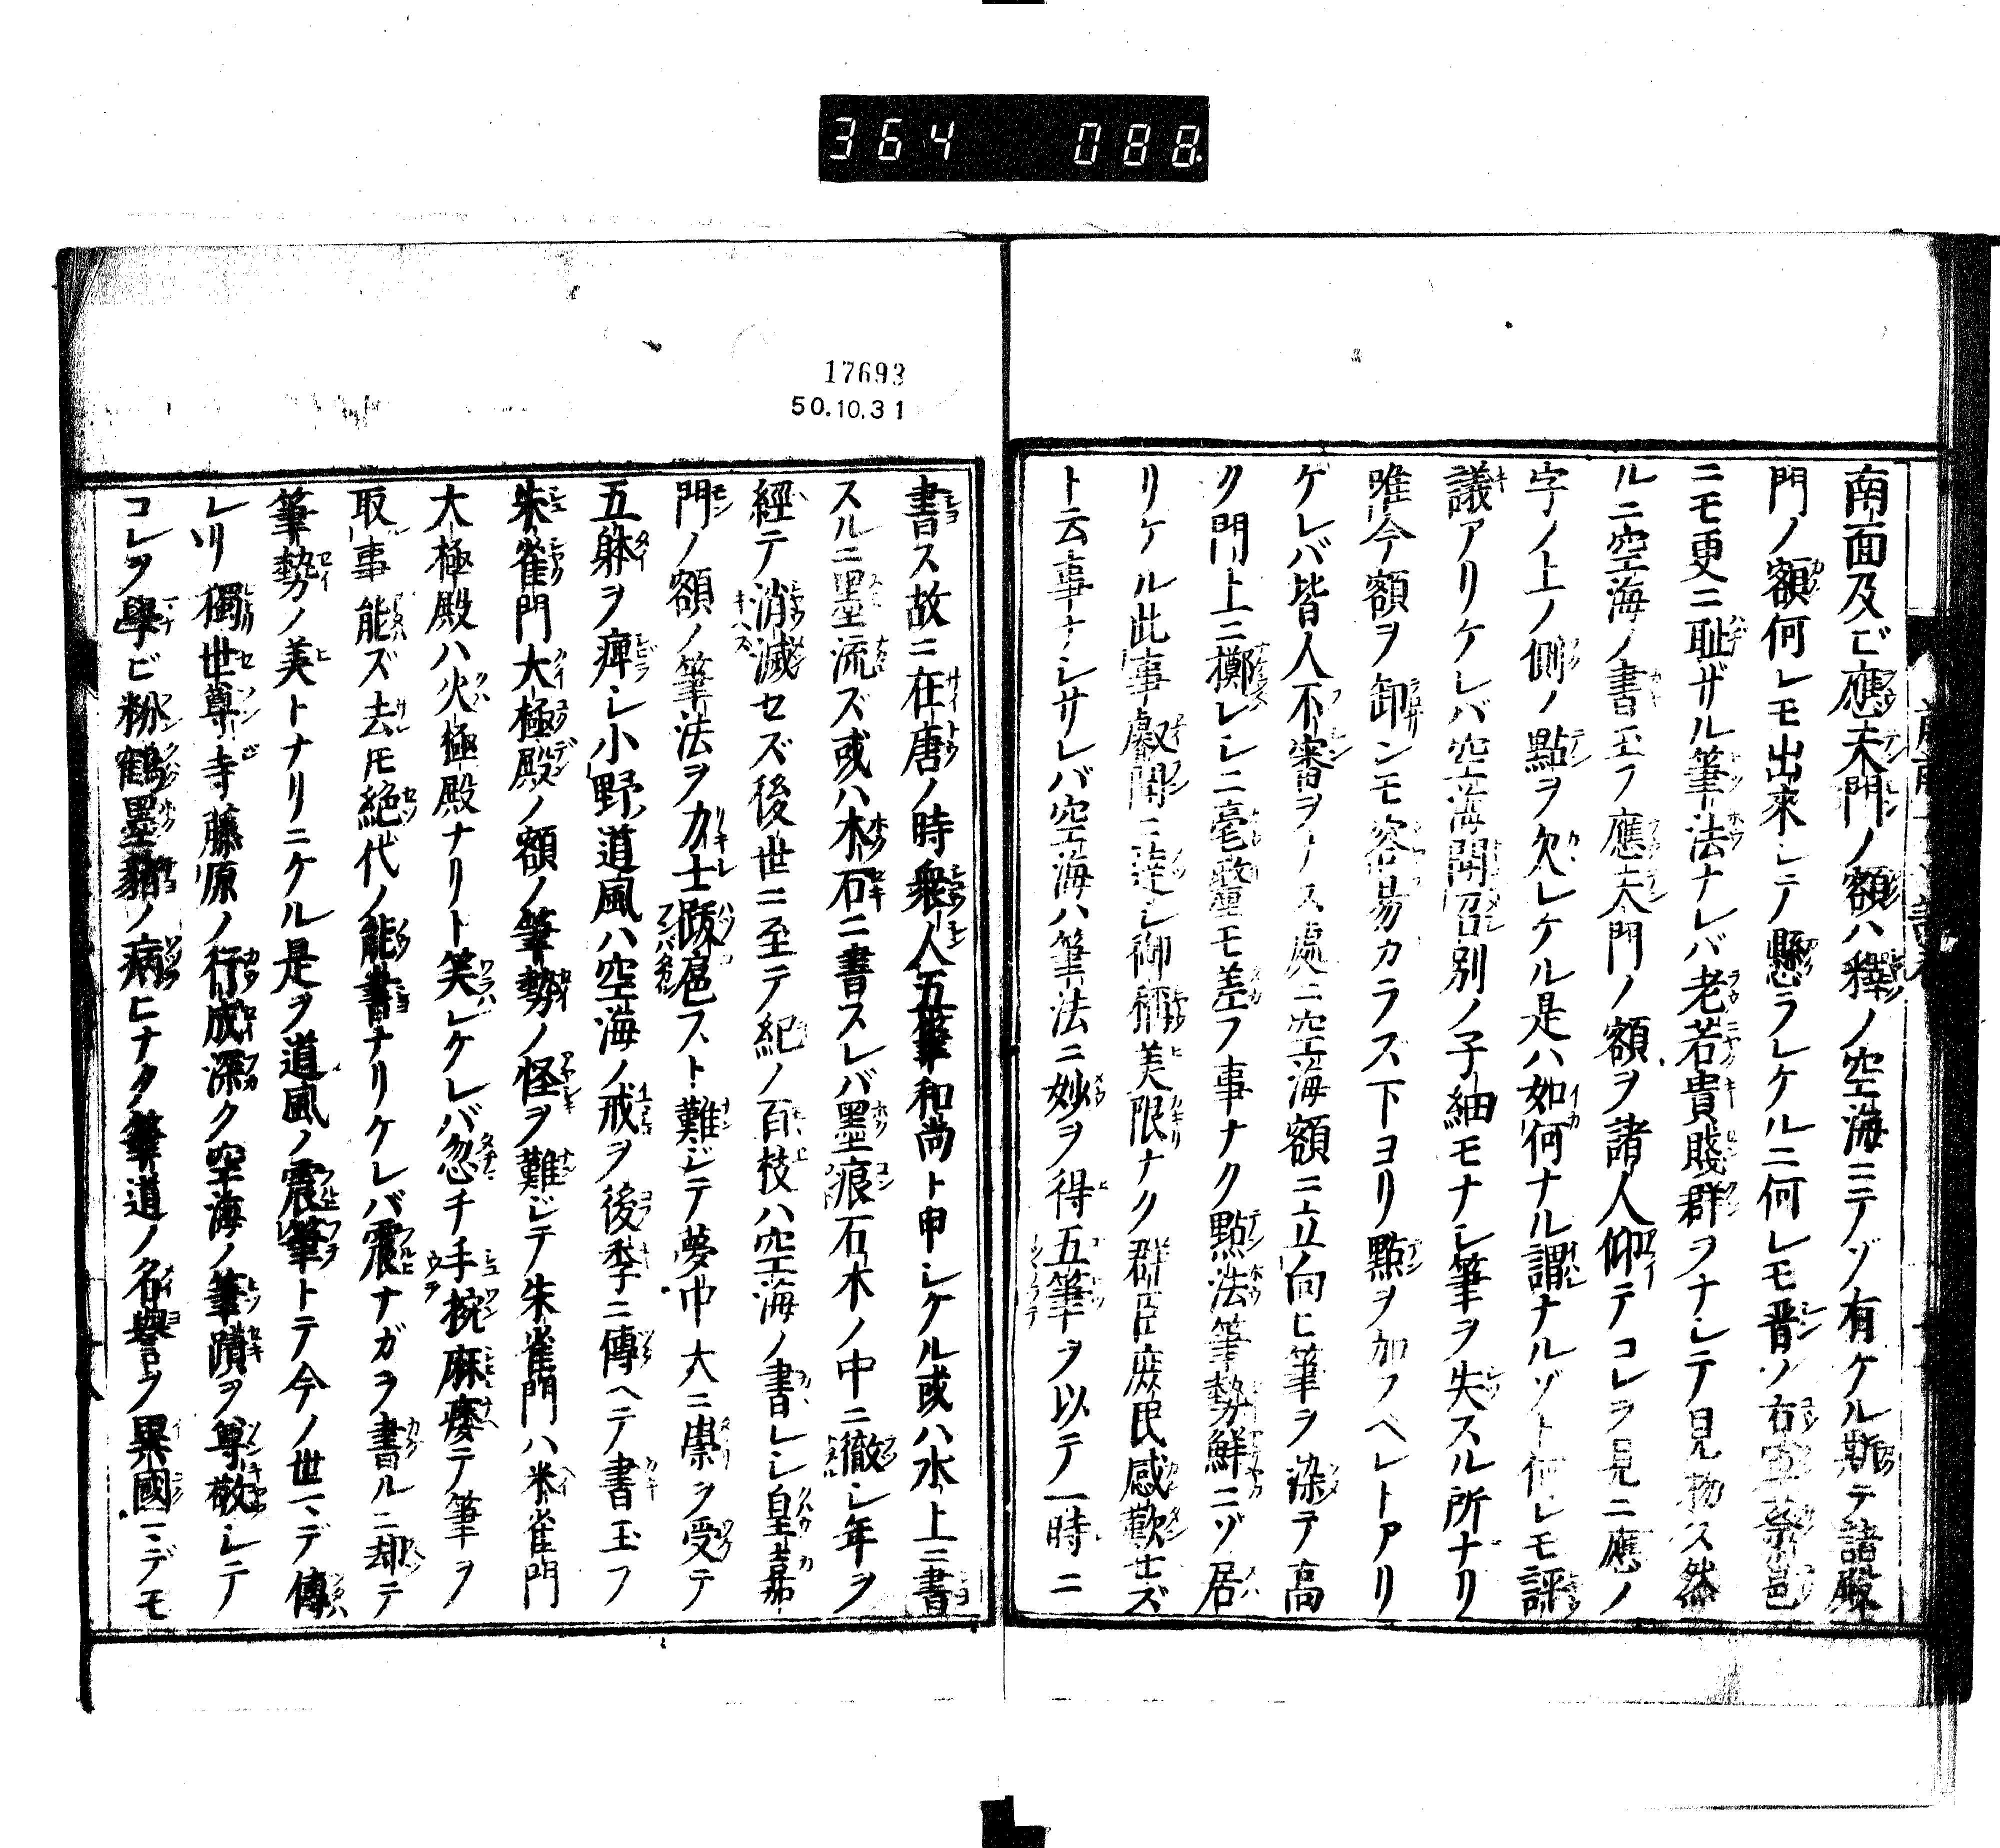 364 088
南面及ビ應天門ノ額ハ釋ノ空海ニテゾ有ケル斯テ諸殿
門ノ額何レモ出來シテ懸ラレケルニ何レモ晋ノ右軍蔡邕
ニモ更ニ耻ザル筆法ナレバ老若貴賤群ヲナシテ見物ス然
ルニ空海ノ書玉フ應天門ノ額ヲ諸人仰テコレヲ見ニ應ノ
字ノ上ノ側ノ點ヲ欠レケル是ハ如何ナル謂ナルゾト何レモ評
議アリケレバ空海聞召別ノ子細モナシ筆ヲ失スル所ナリ
唯今額ヲ卸ンモ容易カラズ下ヨリ點ヲ加フベシトアリ
ケレバ皆人不審ヲナス處ニ空海額ニ立向ヒ筆ヲ染テ高
ク門上ニ擲レシニ毫釐モ差フ事ナク點法筆勢鮮ニゾ居
リケル此事叡聞ニ達シ御稱美限ナク群臣庶民感歎セズ
ト云事ナシサレバ空海ハ筆法ニ妙ヲ得五筆ヲ以テ一時ニ
17693
50.10.31
書ス故ニ在唐ノ時衆人五筆和尚ト申シケル或ハ水上ニ書
スルニ墨流ズ或ハ木石ニ書スレバ墨痕石木ノ中ニ徹シ年ヲ
經テ消滅セズ後世ニ至テ紀ノ百枝ハ空海ノ書レシ皇嘉
門ノ額ノ筆法ヲ力士跋扈スト難ジテ夢中大ニ祟ヲ受テ
五躰ヲ痺レ小野道風ハ空海ノ戒ヲ後季ニ傳ヘテ書玉フ
朱雀門大極殿ノ額ノ筆勢ノ怪ヲ難ジテ朱雀門ハ米雀門
大極殿ハ火極殿ナリト笑レケレバ忽チ手椀麻痿テ筆ヲ
取事能ズ去モ絶代ノ能書ナリケレバ震ナガラ書ルニ却テ
筆勢ノ美トナリニケル是ヲ道風ノ震筆トテ今ノ世マデ傳
レリ獨世尊寺藤原ノ行成深ク空海ノ筆蹟ヲ尊敬シテ
コレヲ學ビ粉鶴墨豬ノ病ヒナク筆道ノ名譽ヲ異國マデモ